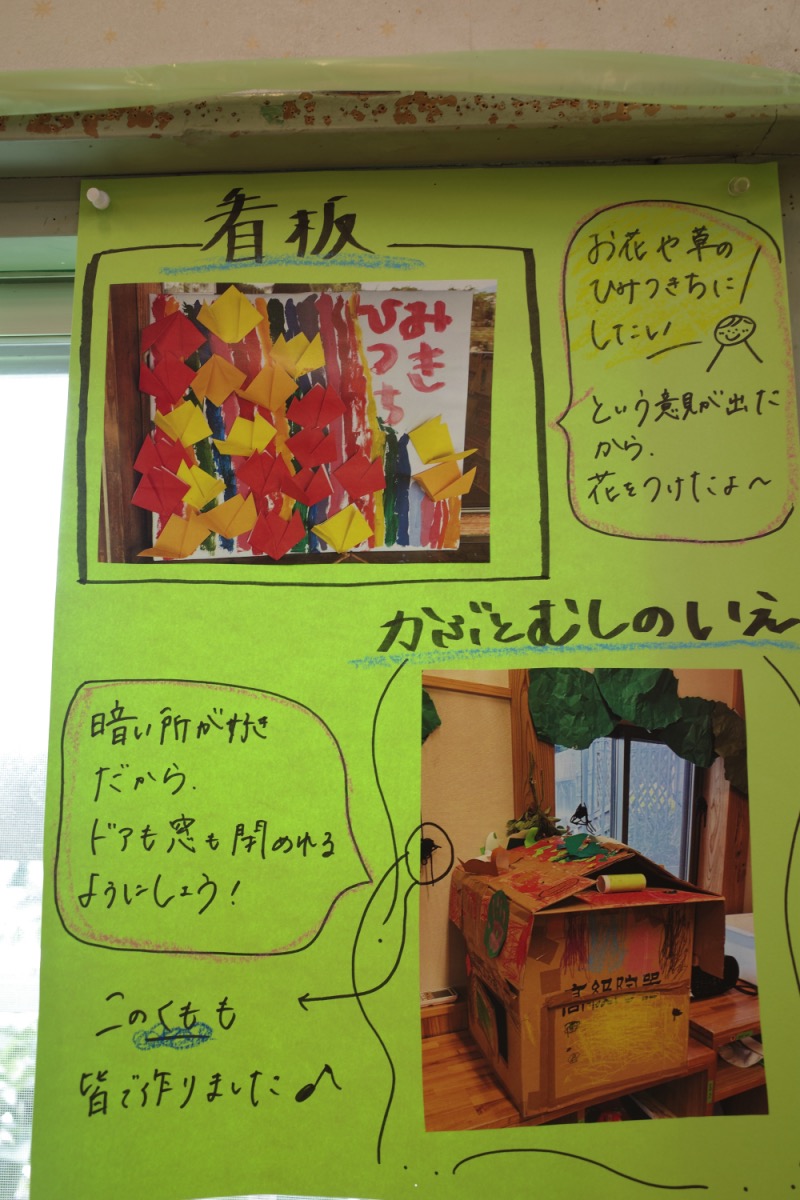 看板
ひみつ
きち
お花や草の
ひみつきちに
したい
という意見が出た
から、
花をつけたよ〜
かぶとむしのいえ
暗い所が好き
だから、
ドアも窓も閉めれる
ようにしよう!
このくもも
皆で作りました♪